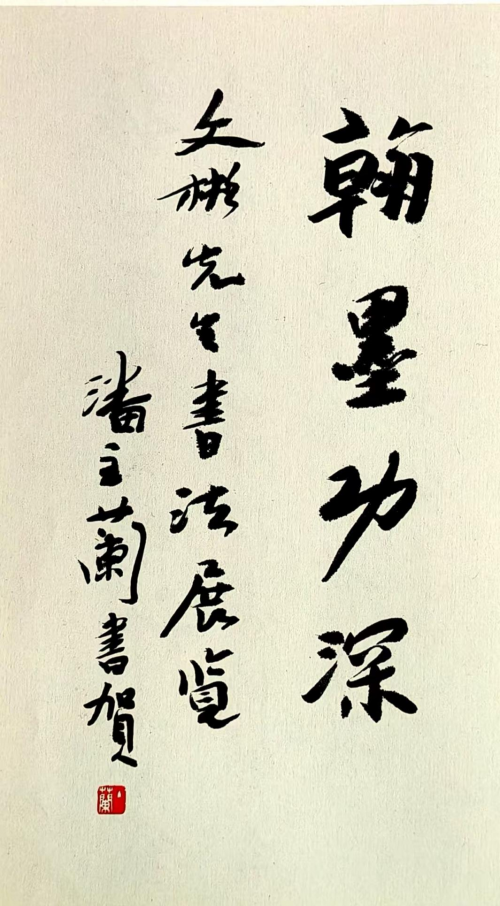 翰墨功深
文彬先生书法展览
潘主兰書賀